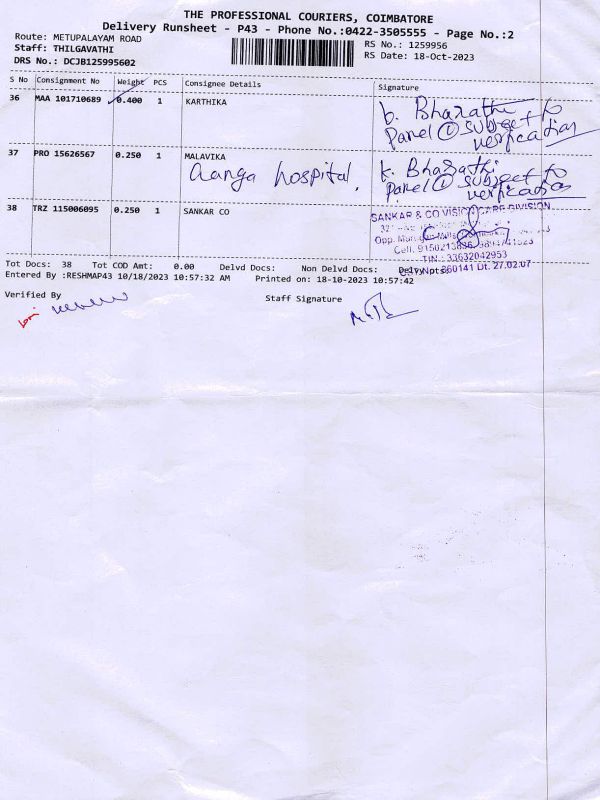 THE PROFESSIONAL COURIERS, COIMBATORE
Delivery Runsheet - P43 - Phone No.:0422-3505555 - Page No.:2
Route: METUPALAYAM ROAD
RS No.: 1259956
Staff: THILGAVATHI
RS Date: 18-Oct-2023
DRS No.: DCJB125995602
S No Consignment No Weight PCS Consignee Details Signature
36 MAA 101710689 0.400 1 KARTHIKA
b. Bharathi
Panel ① subject to
verification
37 PRO 15626567 0.250 1 MALAVIKA
Aanga hospital.
k. Bharathi
Panel ① subject to
verification
38 TRZ 115006095 0.250 1 SANKAR CO
SANKAR & CO VISION CARE DIVISION
Opp. Murugan Mills
Cell: 9150213836
TIN.: 33632042953
360141 Dt. 27.02.07
Tot Docs: 38 Tot COD Amt: 0.00 Delvd Docs: Non Delvd Docs:
Entered By :RESHMAP43 10/18/2023 10:57:32 AM Printed on: 18-10-2023 10:57:42
Verified By
Staff Signature